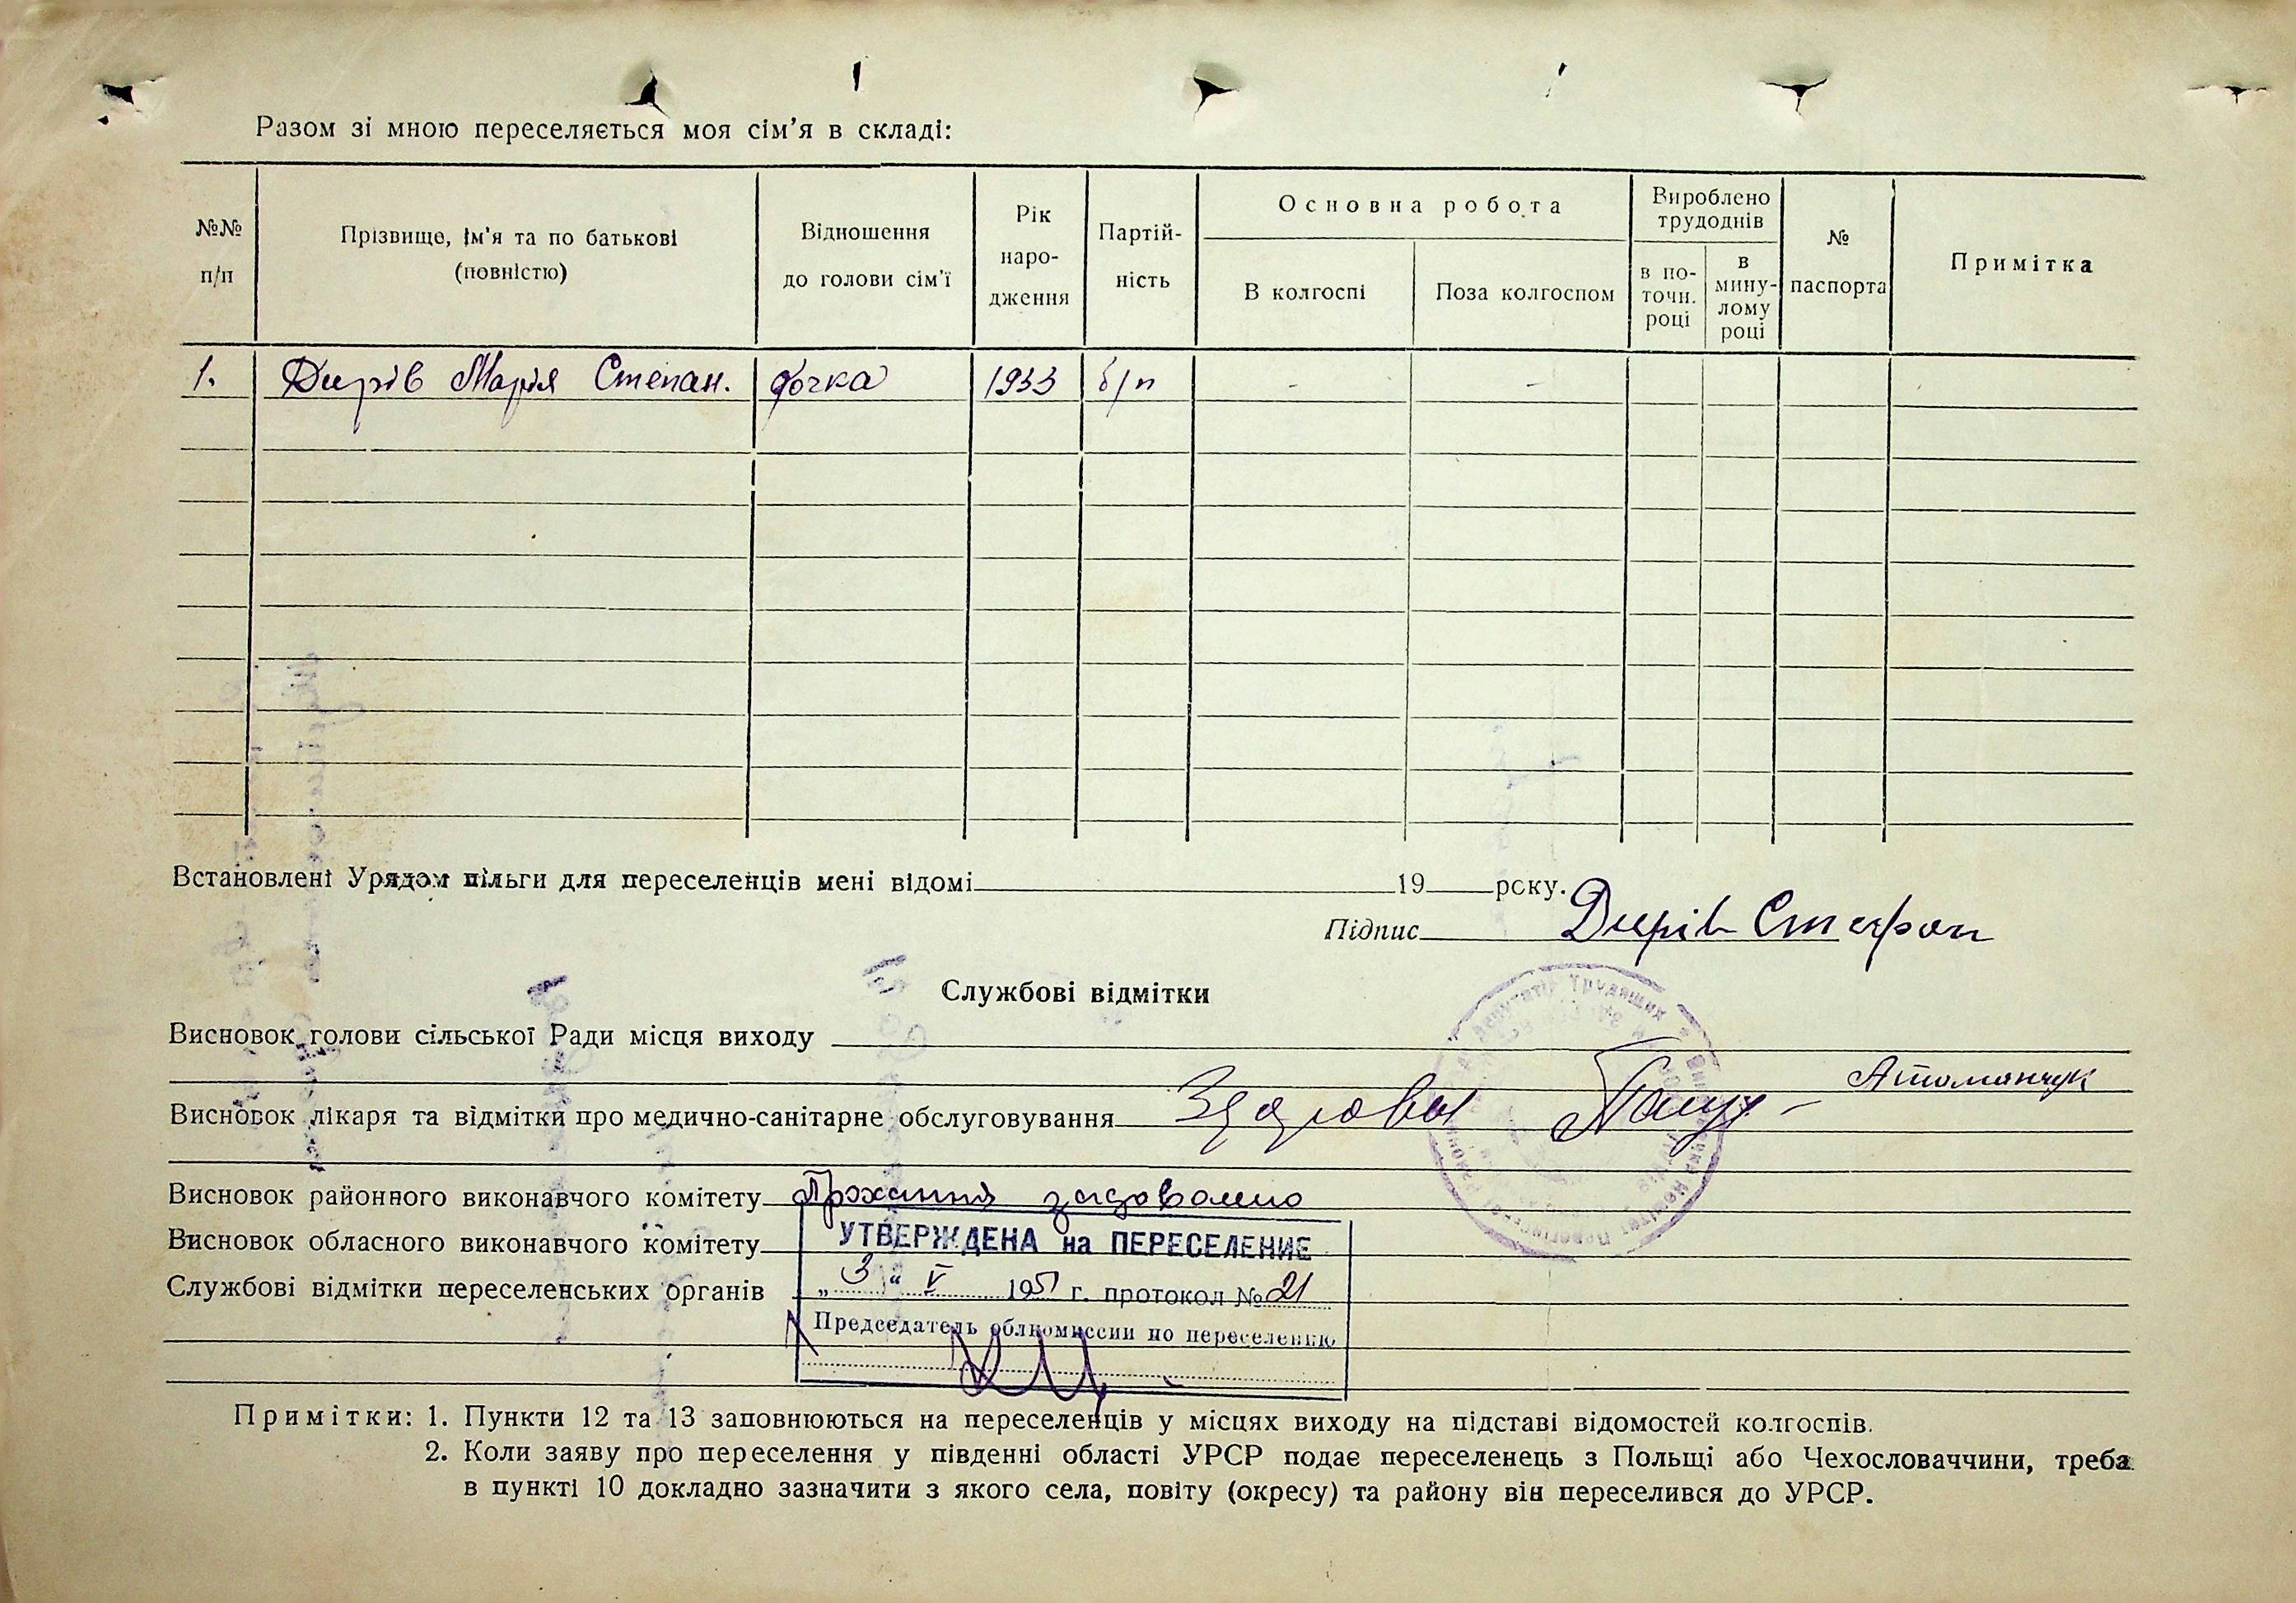 Разом зі мною переселяється моя сім'я в складі:
№№ п/п
Прізвище, ім'я та по батькові (повністю)
Відношення до голови сім'ї
Рік народження
Партійність
Основна робота
В колгоспі
Поза колгоспом
Вироблено трудоднів
в поточн. році
в минулому році
№ паспорта
Примітка
1. Дирів Марія Степан. дочка 1933 б/п - -
Встановлені Урядом пільги для переселенців мені відомі 19 року.
Підпис Дирів Стефан
Службові відмітки
Висновок голови сільської Ради місця виходу
Атаманчук
Висновок лікаря та відмітки про медично-санітарне обслуговування Здорова
Висновок районного виконавчого комітету Прохання задоволено
Висновок обласного виконавчого комітету
УТВЕРЖДЕНА на ПЕРЕСЕЛЕНИЕ
Службові відмітки переселенських органів
„3“ V 1951 г. протокол № 21
Председатель облкомиссии по переселению
Примітки: 1. Пункти 12 та 13 заповнюються на переселенців у місцях виходу на підставі відомостей колгоспів.
2. Коли заяву про переселення у південні області УРСР подає переселенець з Польщі або Чехословаччини, треба
в пункті 10 докладно зазначити з якого села, повіту (окресу) та району він переселився до УРСР.